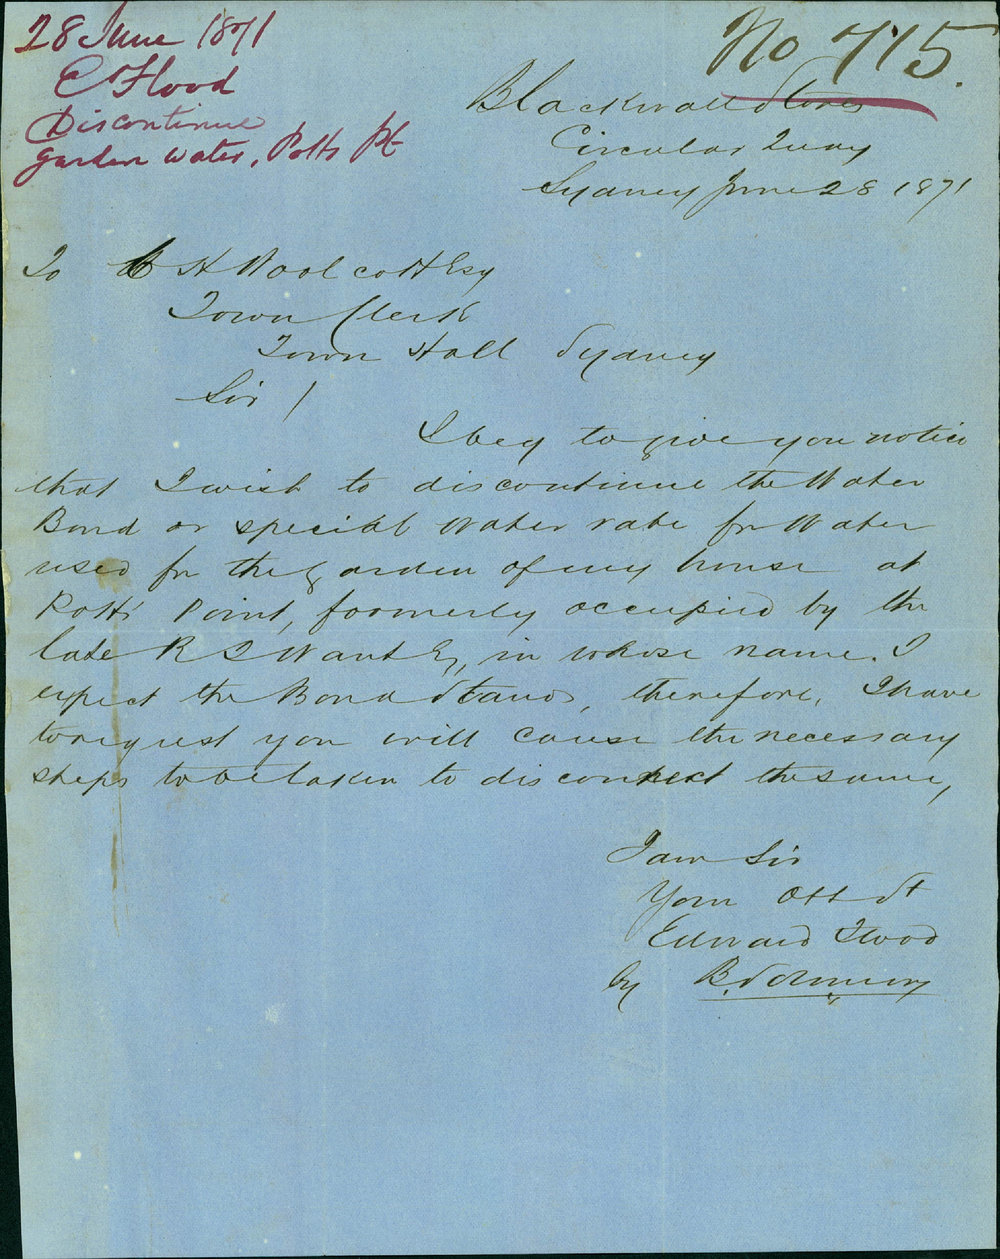 28 June 1871
E Flood
Discontinue
garden water, Potts Pt
No 715.
Blackwall Stores
Circular Quay
Sydney June 28 1871
To C H Woolcott Esq
Town Clerk
Town Hall Sydney
Sir /
I beg to give you notice
that I wish to discontinue the Water
Bond or special Water rate for Water
used for the garden of my house at
Potts' Point, formerly occupied by the
late R J Want Esq, in whose name. I
expect the Bond Stands, therefore, I have
to request you will cause the necessary
steps to be taken to disconnect the same,
I am Sir
Your Obt St
Edward Flood
by B.